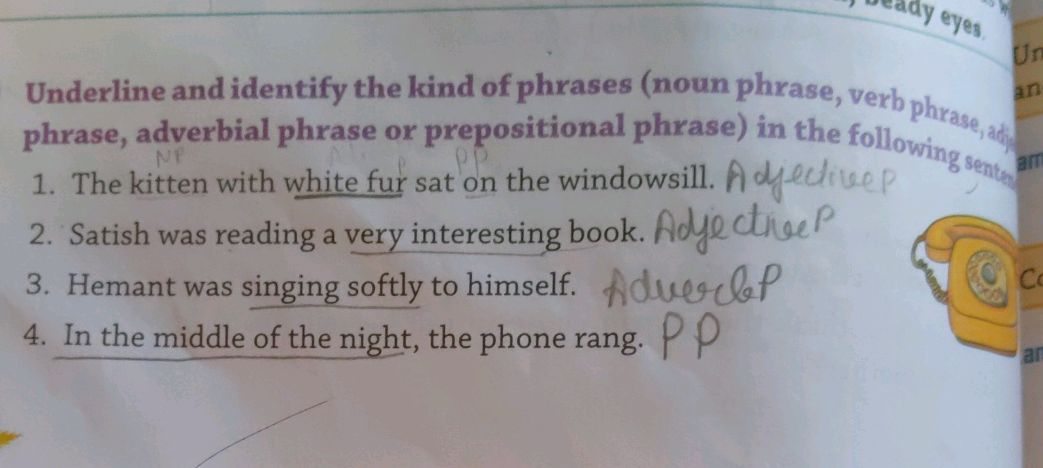 beady eyes.
Underline and identify the kind of phrases (noun phrase, verb phrase, adje
phrase, adverbial phrase or prepositional phrase) in the following senten
NP PP
1. The kitten with white fur sat on the windowsill. Adjective P
2. Satish was reading a very interesting book. Adjective P
3. Hemant was singing softly to himself. Adverb P
4. In the middle of the night, the phone rang. PP
Un
an
am
Co
an